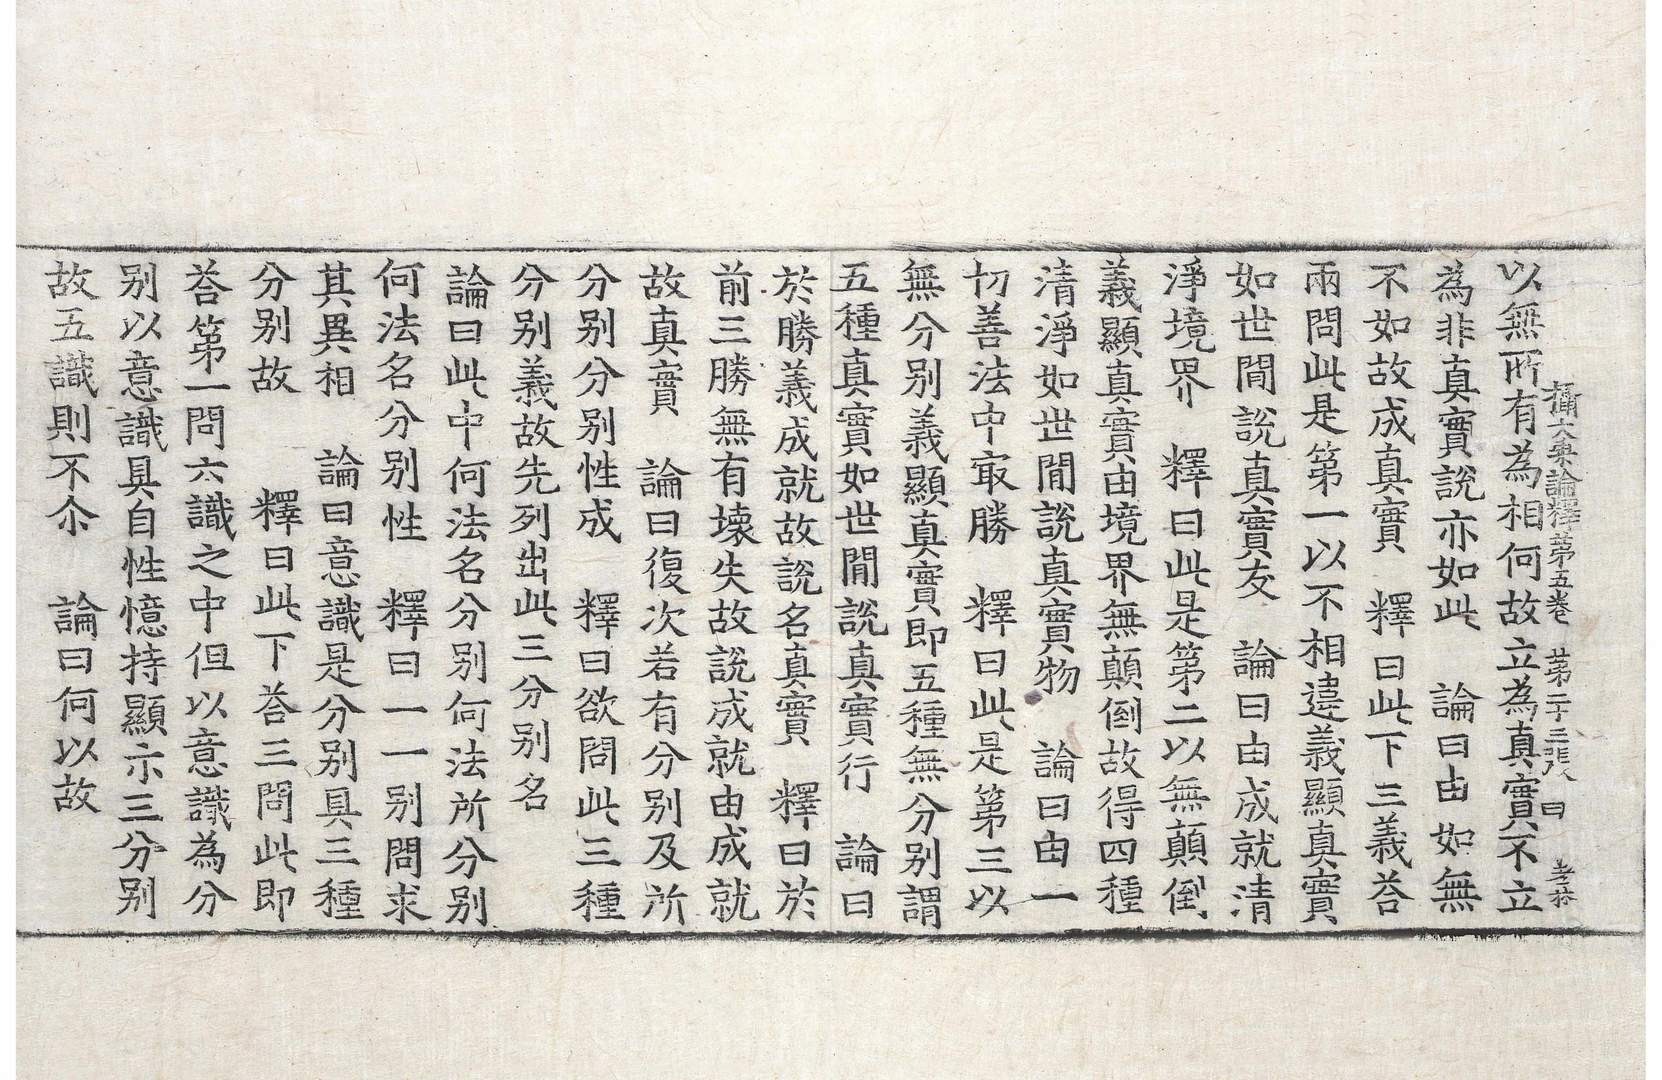 攝大乘論釋第五卷　第二十三張　曰
以無所有為相何故立為真實不立
為非真實說亦如此　論曰由如無
不如故成真實　釋曰此下三義荅
兩問此是第一以不相違義顯真實
如世間說真實友　論曰由成就清
淨境界　釋曰此是第二以無顛倒
義顯真實由境界無顛倒故得四種
清淨如世間說真實物　論曰由一
切善法中㝡勝　釋曰此是第三以
無分別義顯真實即五種無分別謂
五種真實如世間說真實行　論曰
於勝義成就故說名真實　釋曰於
前三勝無有壞失故說成就由成就
故真實　論曰復次若有分別及所
分別分別性成　釋曰欲問此三種
分別義故先列出此三分別名
論曰此中何法名分別何法所分別
何法名分別性　釋曰一一別問求
其異相　論曰意識是分別具三種
分別故　釋曰此下荅三問此即
荅第一問六識之中但以意識為分
別以意識具自性憶持顯示三分別
故五識則不尒　論曰何以故